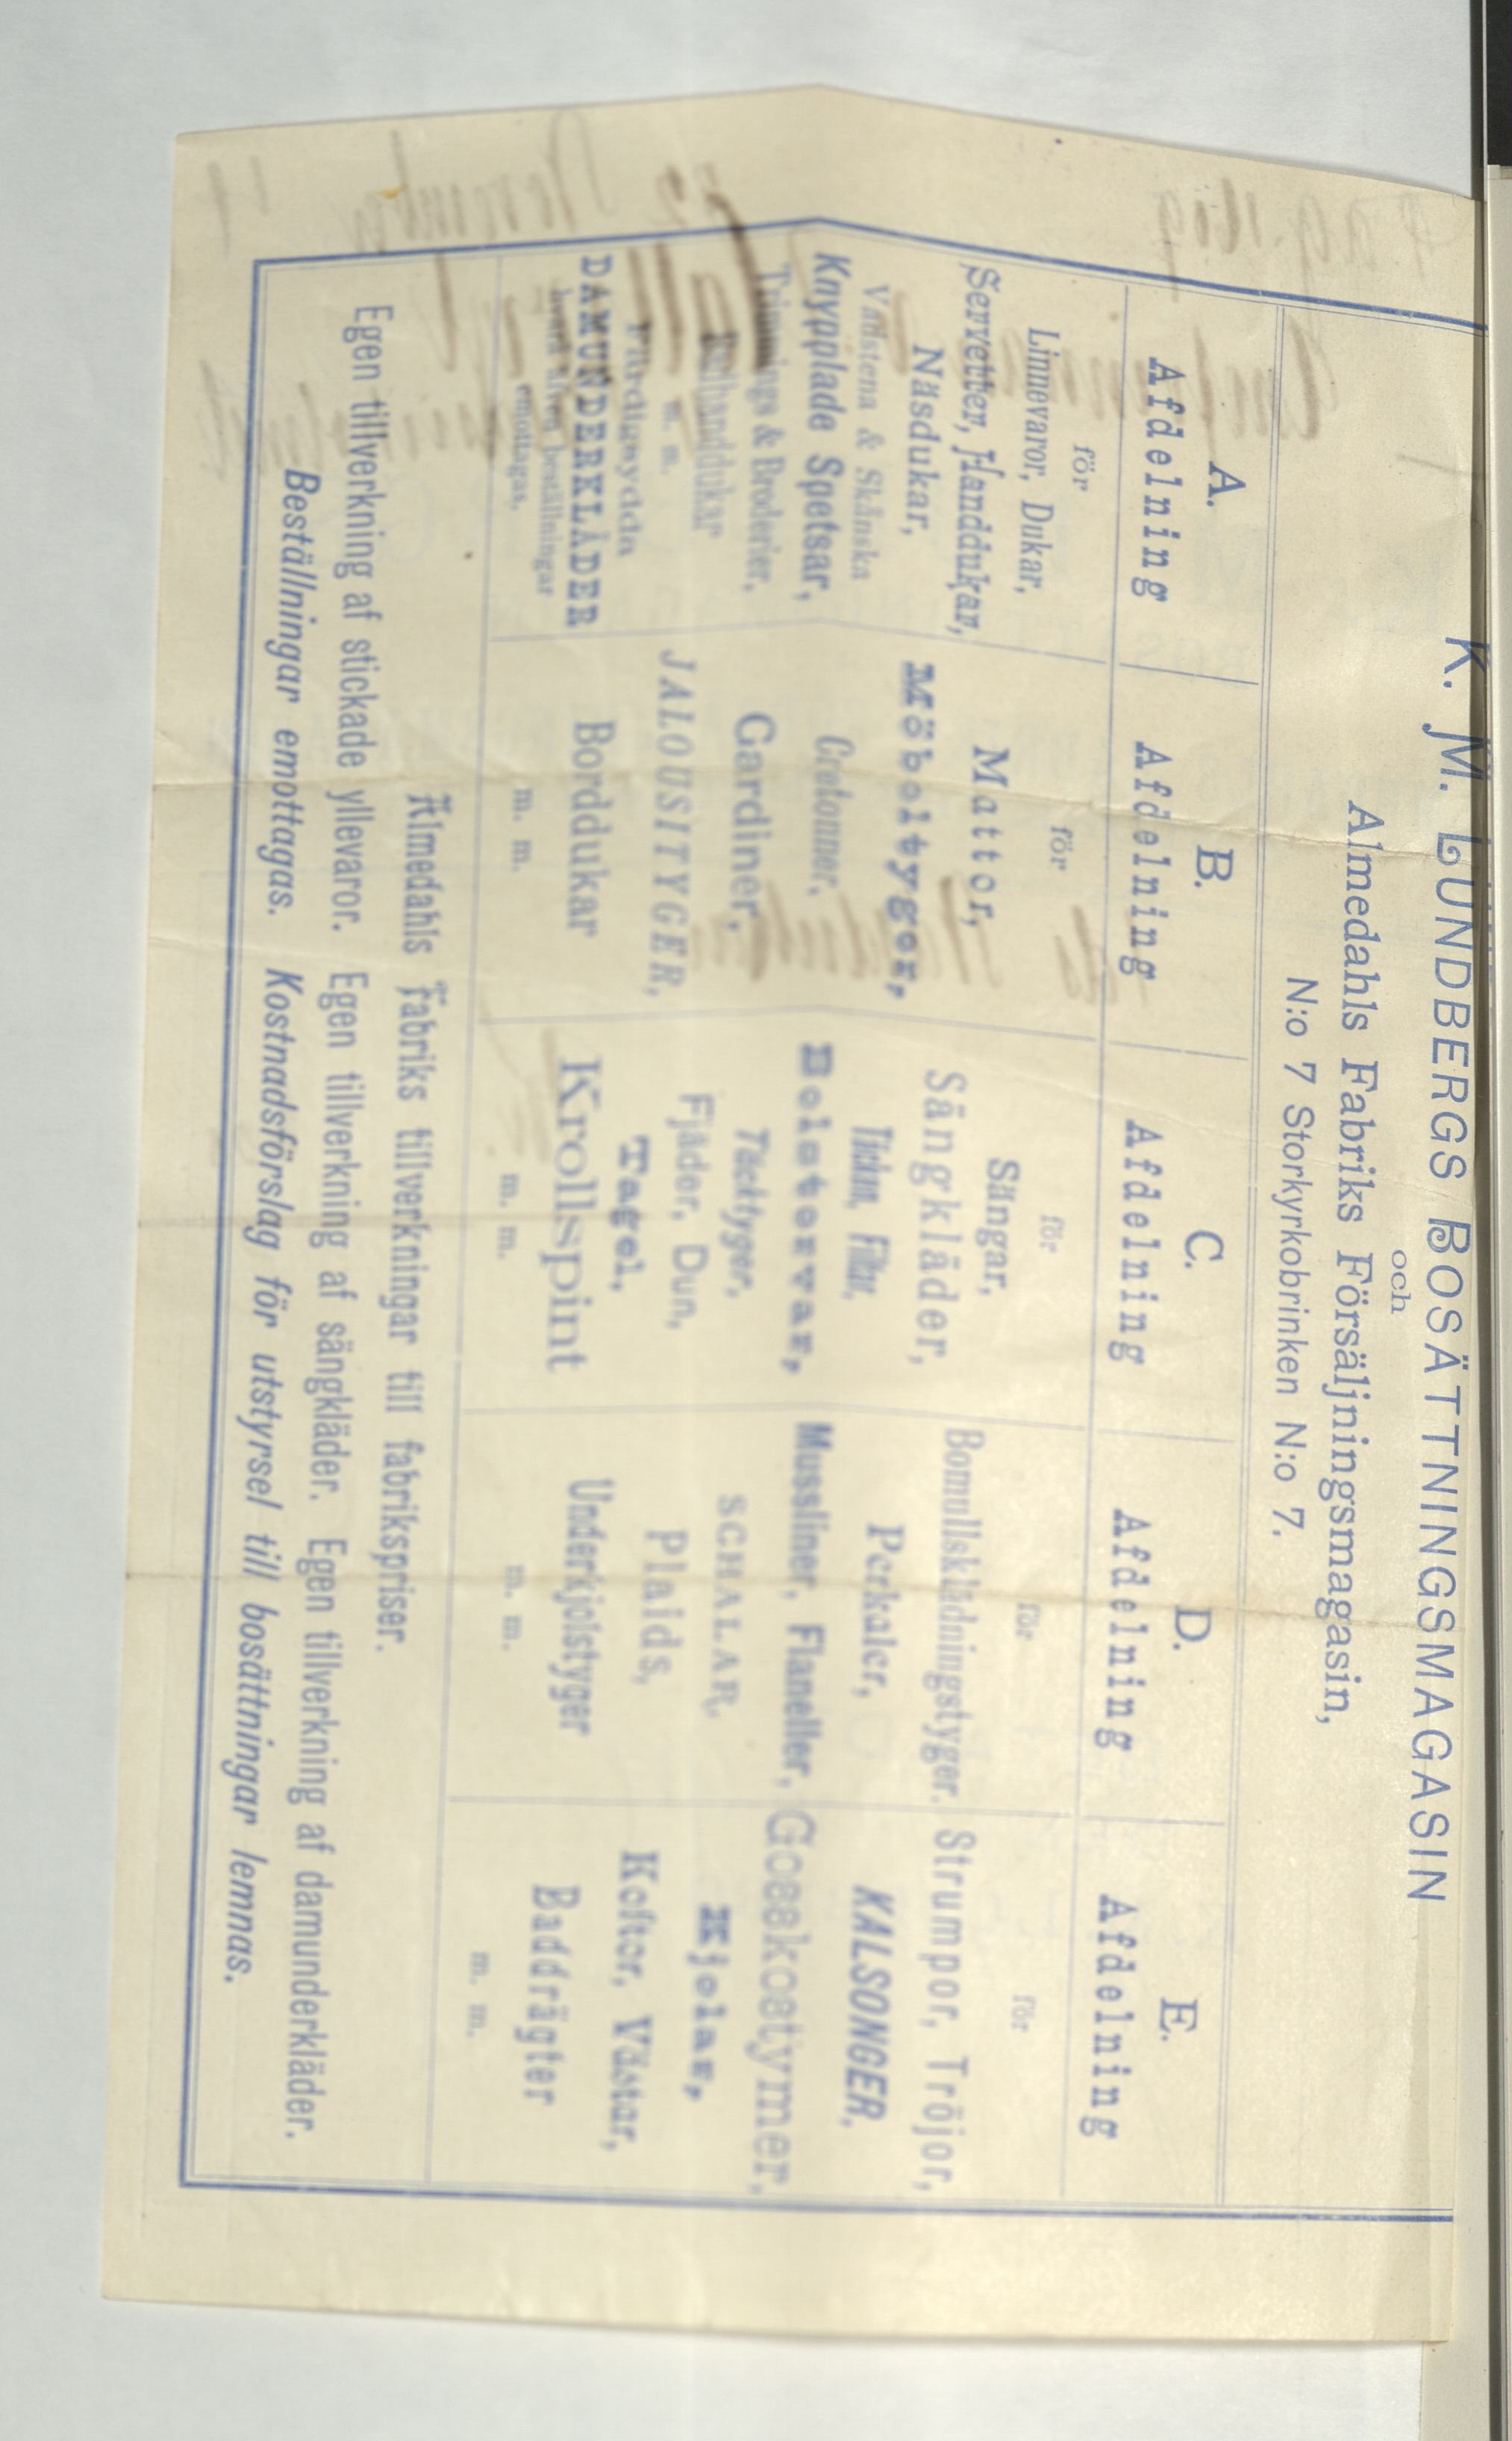 K. M. LUNDBERGS BOSÄTTNINGSMAGASIN
och
Almedahls Fabriks Försäljningsmagasin,
N:o 7 Storkyrkobrinken N:o 7.
A.
Afdelning
för
Linnevaror, Dukar,
Servetter, Handdukar,
Näsdukar,
Vadstena & Skånska
Knypplade Spetsar,
Trimmings & Broderier,
m. m.
DAMUNDERKLÄDER
beställningar
emottagas.
B.
Afdelning
för
Mattor,
Möbeltyger,
Cretonner,
Gardiner,
JALOUSITYGER,
Borddukar
m. m.
C.
Afdelning
för
Sängar,
Sängkläder,
Filtar,
Bolstervar,
Täcktyger,
Fjäder, Dun,
Tagel,
Krollspint
m. m.
D.
Afdelning
för
Bomullsklädningstyger.
Perkaler,
Mussliner, Flaneller,
SCHALAR,
Plaids,
Underkjolstyger
m. m.
E.
Afdelning
för
Strumpor, Tröjor,
KALSONGER,
Gosskostymer,
Kjolar,
Koftor, Västar,
Baddrägter
m. m.
Almedahls Fabriks tillverkningar till fabrikspriser.
Egen tillverkning af stickade yllevaror. Egen tillverkning af sängkläder. Egen tillverkning af damunderkläder.
Beställningar emottagas. Kostnadsförslag för utstyrsel till bosättningar lemnas.